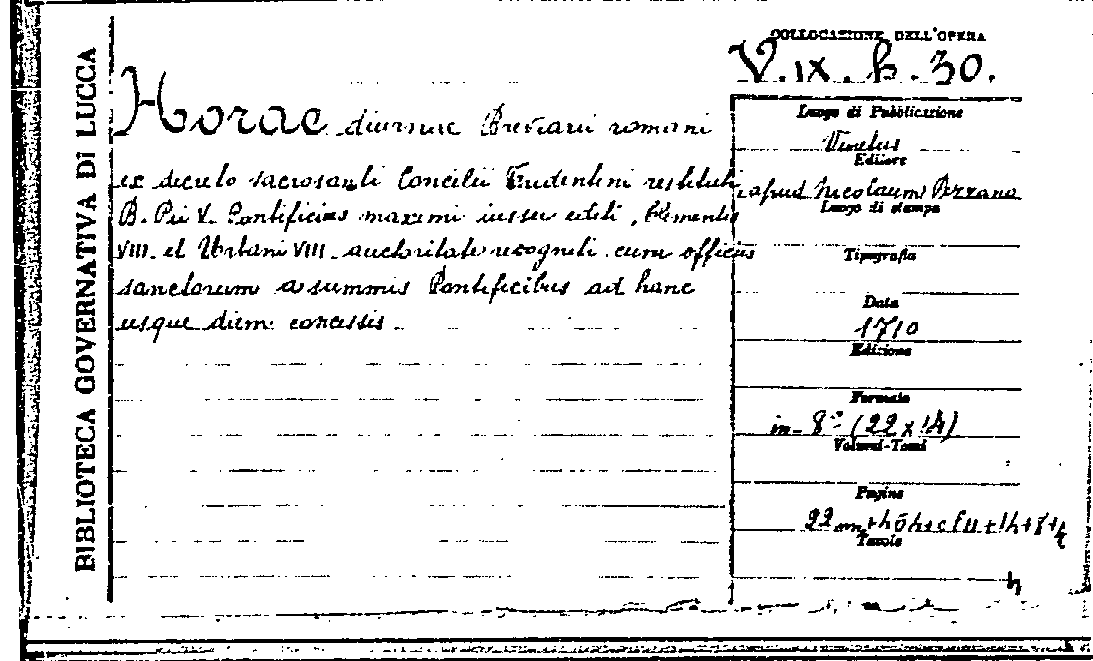 BIBLIOTECA GOVERNATIVA DI LUCCA
COLLOCAZIONE DELL'OPERA
V. IX. h. 30.
Horae diurnae Breviarii romani
ex decreto sacrosancti Concilii Tridentini restituti
B. Pii V. Pontificis maximi iussu editi, Clementis
VIII. et Urbani VIII. auctoritate recogniti cum officiis
sanctorum a summis Pontificibus ad hanc
usque diem concessis
Luogo di Pubblicazione
Venetiis
Editore
apud Nicolaum Pezzana
Luogo di stampa
Tipografia
Data
1710
Edizione
Formato
in-8° (22 x 14)
Volumi-Tomi
Pagine
Tavole